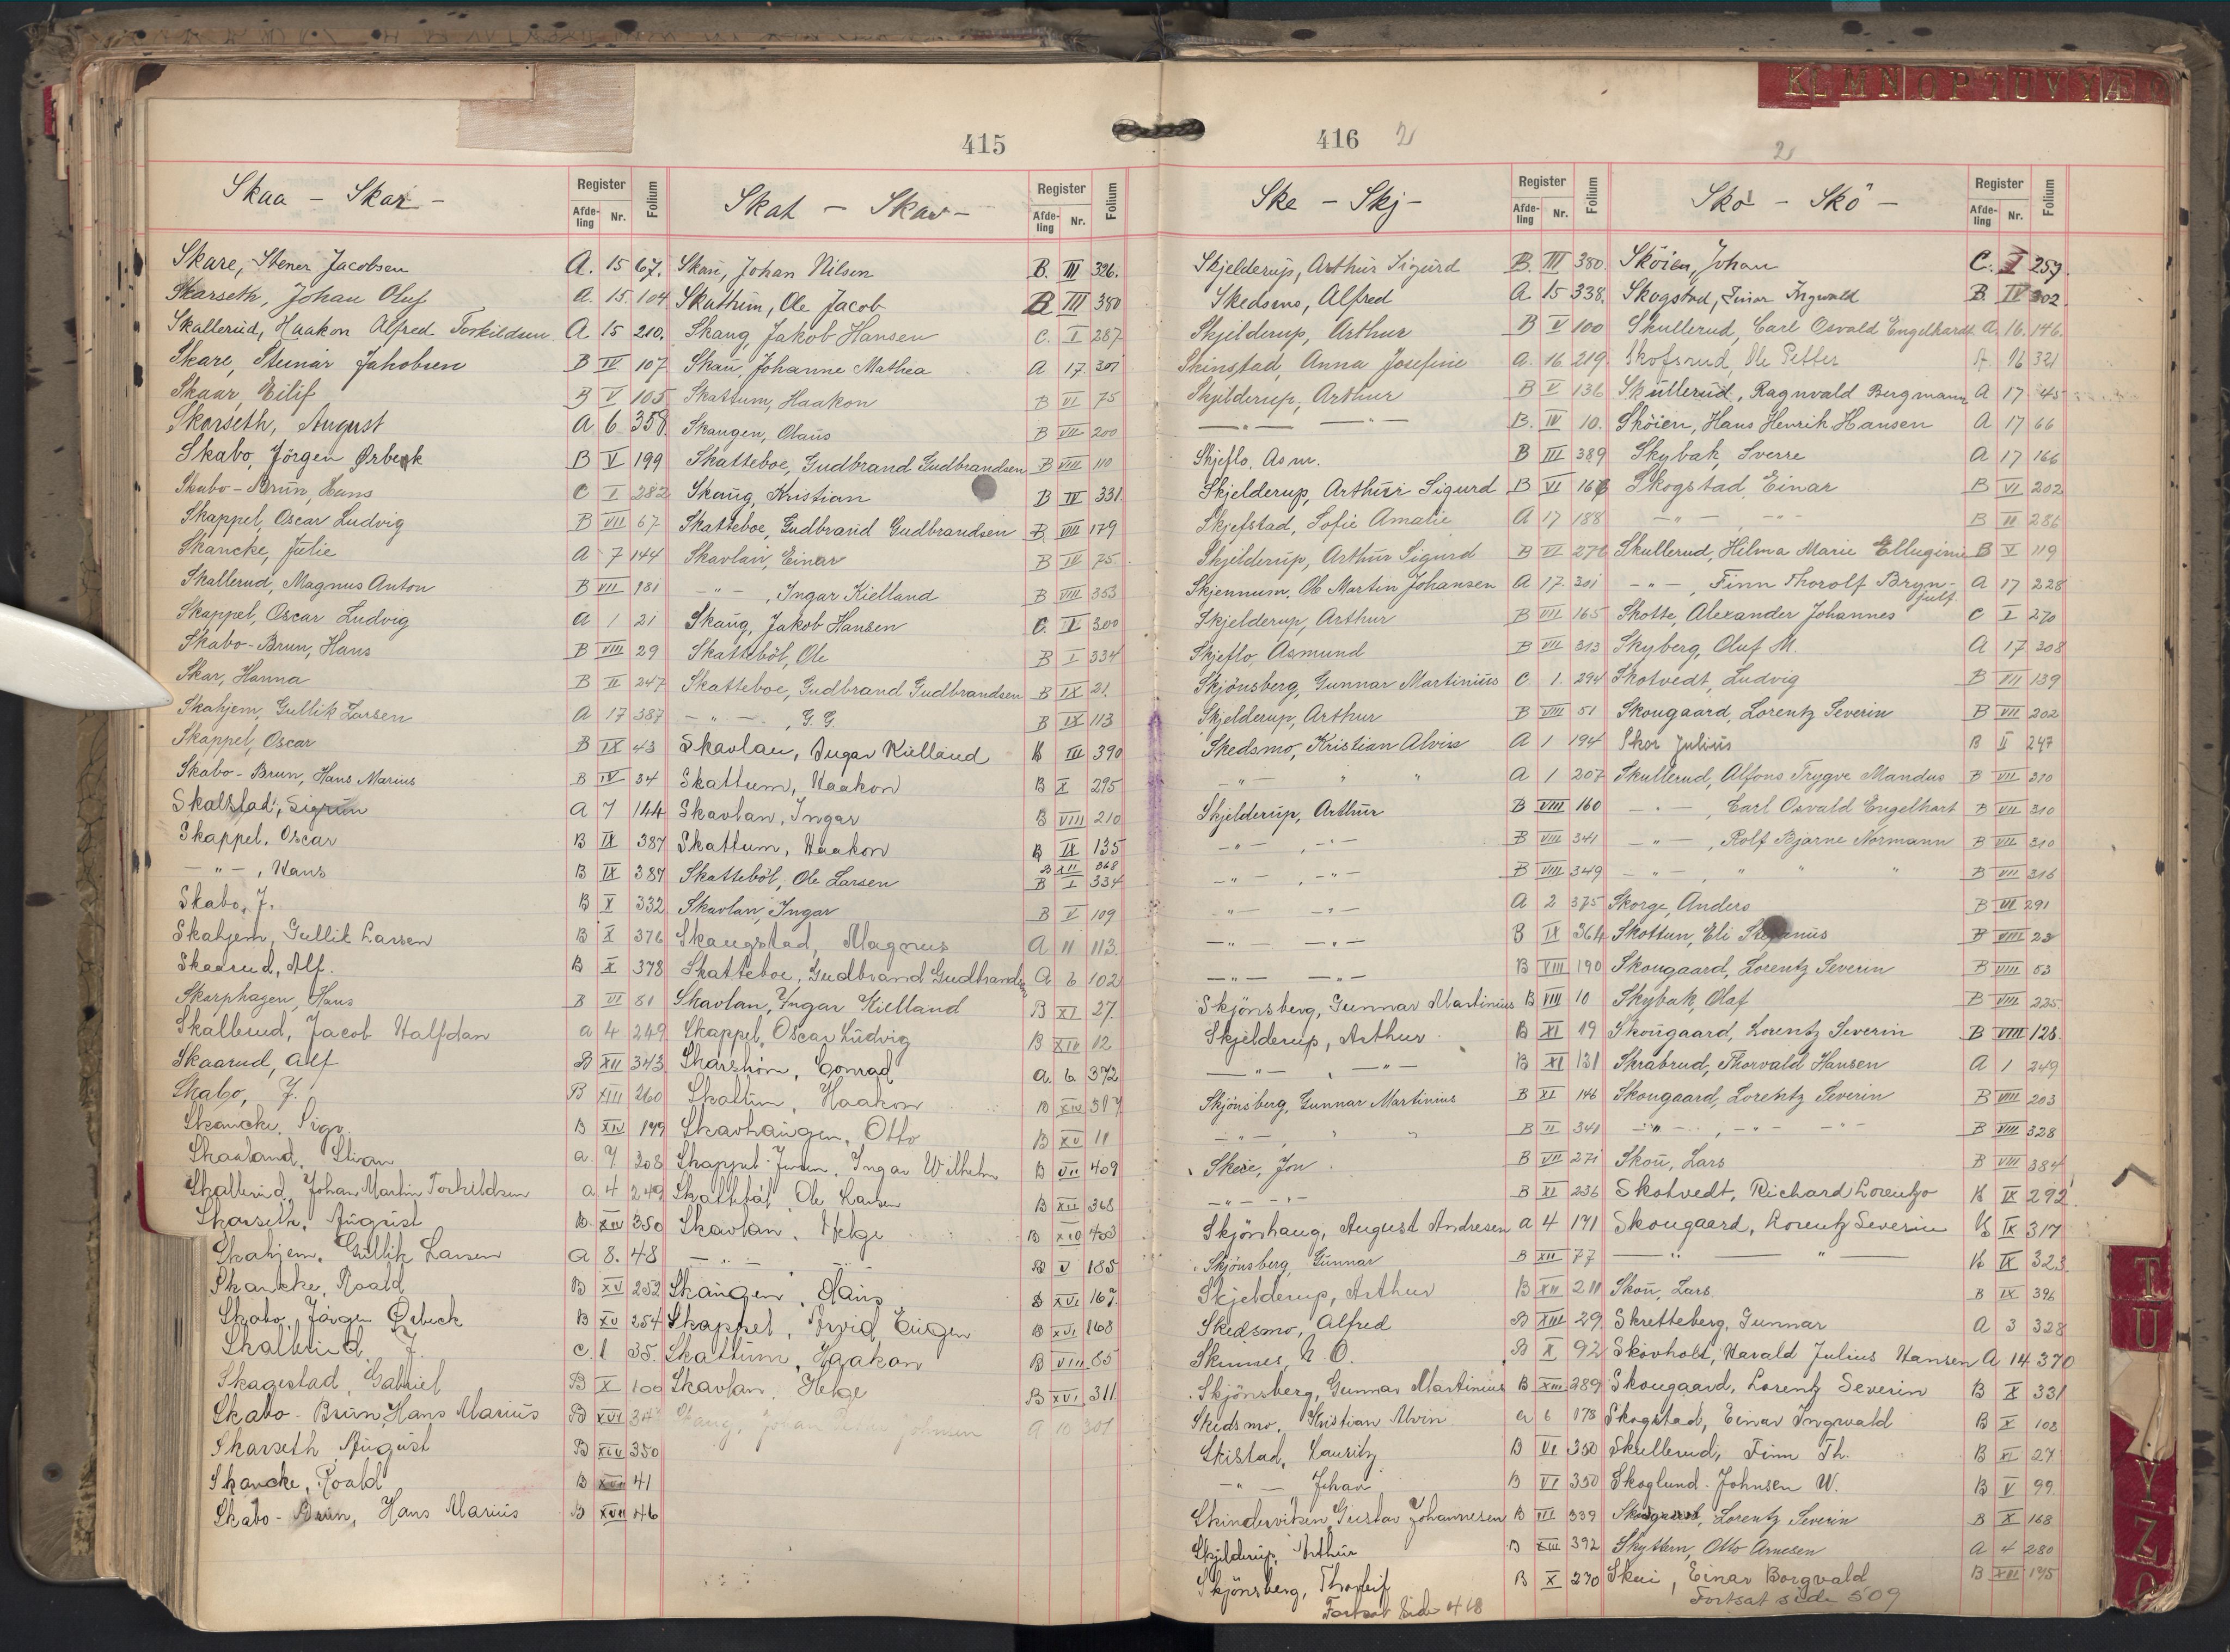 KL M N O P T U V Y Æ
415
Skaa - Skar -
Register
Folium
Afde-ling
Nr.
Skare, Stener Jacobsen A. 15 67.
Skarseth, Johan Oluf A. 15. 104
Skallerud, Haakon Alfred Torkildsen A 15 210.
Skare, Steinar Jakobsen B IV 107
Skaar, Eilif B V 105
Skarseth, August A 6 358
Skabo, Jörgen Ørbeck B V 199
Skabo-Brun, Hans C I 282
Skappel, Oscar Ludvig B VII 67
Skancke, Julie A 7 144
Skallerud, Magnus Anton B VII 181
Skappel, Oscar Ludvig A 1 21
Skabo-Brun, Hans B VIII 29
Skar, Hanna B II 247
Skahjem, Gullik Larsen A 17 387
Skappel, Oscar B IX 43
Skabo-Brun, Hans Marius B IV 34
Skalstad, Sigrun A 7 144
Skappel, Oscar B IX 387
— " — , Hans B IX 387
Skabo, J. B X 332
Skahjem, Gullik Larsen B X 376
Skaarud, Alf. B X 378
Skarphagen, Hans B VI 81
Skallerud, Jacob Halfdan a 4 249
Skaarud, Alf B XII 343
Skabo, J. B XIII 260
Skancke, Sigv. B XIV 149
Skaaland, Stian a. 7 208
Skallerud, Johan Martin Torkildsen a 4 249
Skarseth, August B XIV 350
Skahjem, Gullik Larsen a 8. 48
Skancke, Roald B XV 252
Skabo, Jörgen Ørbeck B XV 254
Skallerud, J. C. 1 35.
Skagestad, Gabriel B X 100
Skabo-Brun, Hans Marius B XVI
Skarseth, August B XIV 350
Skancke, Roald B XVII 41
Skabo-Brun, Hans Marius B XVII 46
Skat - Skav -
Register
Folium
Afde-ling
Nr.
Skau, Johan Nilsen B. III 326.
Skattum, Ole Jacob B III 380
Skaug, Jakob Hansen C. I 287
Skau, Johanne Mathea A 17 301
Skattum, Haakon B VI 75
Skaugen, Olaus B VII 200
Skatteboe, Gudbrand Gudbrandsen B VIII 110
Skaug, Kristian B IV 331.
Skatteboe, Gudbrand Gudbrandsen B. VIII 179
Skavlan, Einar B IV 75.
— " — , Ingar Kielland B VIII 353
Skaug, Jakob Hansen C. I 300
Skatteböl, Ole B I 334
Skatteboe, Gudbrand Gudbrandsen B IX 21.
— " — , G. G. B IX 113
Skavlan, Ingar Kielland B III 390
Skattum, Haakon B X 295
Skavlan, Ingar B VIII 210
Skattum, Haakon B IX 135
B XII 368
Skatteböl, Ole Larsen B I 334
Skavlan, Ingar B V 109
Skaugstad, Magnus A 11 113.
Skatteboe, Gudbrand Gudbrands A 6 102
Skavlan, Ingar Kielland B XI 27.
Skappel, Oscar Ludvig B XIV 12
Skarström, Conrad a. 6. 372
Skattum, Haakon B XIV 317
Skavhaugen, Otto B XV 11
Skappel-Jensen, Ingar Wilhelm B VII 409
Skatteböl, Ole Larsen B XII 368
Skavlan, Helge B 403
— " — B V 185
Skaugen, Olaus B XVI 167.
Skappel, Arvid Eugen B XVI 168
Skattum, Haakon B VIII 85
Skavlan, Helge B XVI 311
Skaug, Johan Johnsen A 10 301
416 2
Ske - Skj -
Register
Folium
Afde-ling
Nr.
Skjelderup, Arthur Sigurd B. III 380
Skedsmo, Alfred A 15 338.
Skjelderup, Arthur B V 100
Skinstad, Anna Josefine a. 16. 219.
Skjelderup, Arthur B V 136
— " — — " — B. IV 10.
Skjeflo, Asm. B III 389
Skjelderup, Arthur Sigurd B VI 166
Skjefstad, Sofie Amalie A 17 188
Skjelderup, Arthur Sigurd B VI 276
Skjennum, Ole Martin Johansen A 17. 301
Skjelderup, Arthur B VII 165
Skjeflo, Asmund B VII 313
Skjönsberg, Gunnar Martinius C. 1. 294
Skjelderup, Arthur B VIII 51
Skedsmo, Kristian Alvin A 1 194
— " — " " A 1 207
Skjelderup, Arthur B VIII 160
— " — , — " — B VIII 341
— " — , — " — B VIII 349
— " — — " — A 2 375
— " — — " — B IX 364
— " — — " — B VIII 190
Skjönsberg, Gunnar Martinius B VIII 10
Skjelderup, Arthur B XI 19
— " — , — " — B XI 131
Skjönsberg, Gunnar Martinius B XI 146
— " — , " " B II 341
Skeie, Jon B VII 271
— " — " — B XI 236
Skjönhaug, August Andresen a 4 191
Skjönsberg, Gunnar B XII 77
Skjelderup, Arthur B XII 211
Skedsmo, Alfred B XIII 29
Skinnes, N. O. B X 92
Skjönsberg, Gunnar Martinius B XIII 289
Skedsmo, Kristian Alvin a 6 178
Skistad, Lauritz B VI 350
— " — Johan B VI 350
Skinderviken, Gustav Johannesen B VII 339
Skjelderup, Arthur B XIII 392
Skjönsberg, Thorleif B X 270
Fortsat side 418
2
Sko - Skö -
Register
Folium
Afde-ling
Nr.
Sköien, Johan C. I 259.
Skogstad, Einar Ingvald B. IV 302.
Skullerud, Carl Osvald Engelhardt A. 16. 146.
Skofsrud, Ole Petter A. 16 321
Skullerud, Ragnvald Bergmann A 17 45
Sköien, Hans Henrik Hansen A 17 66
Skybak, Sverre A 17 166
Skogstad, Einar B VI 202
— " — , — " — B VI 286
Skullerud, Hilma Marie Elluginie B V 119
— " — , Finn Thorolf Bryn-julf. A 17 228
Skotte, Alexander Johannes C I 270
Skyberg, Oluf M. A 17 308
Skotvedt, Ludvig B VII 139
Skougaard, Lorentz Severin B VII 202
Skor Julius B II 247
Skullerud, Alfons Trygve Mandus B VII 310
— " — , Carl Osvald Engelhart B VII 310
— " — , Rolf Bjarne Normann B VII 310
— " — , " " " B VII 316
Skorge, Anders B VI 291
Skottun, Eli B VIII 23
Skougaard, Lorentz Severin B VIII 53
Skybak, Olaf B VIII 225.
Skougaard, Lorentz Severin B VIII 126.
Skrabrud, Thorvald Hansen A 1 249
Skougaard, Lorentz Severin B VIII 203
— " — , — " — — " — B VIII 328
Skou, Lars B VIII 384
Skotvedt, Richard Lorentzo B IX 292
Skougaard, Lorentz Severin B IX 317
— " — — " — B IX 323.
Skou, Lars. B IX 396
Skretteberg, Gunnar A 3 328
Skovholt, Harald Julius Hansen A 14. 370
Skougaard, Lorentz Severin B X 331
Skogstad, Einar Ingvald B X 108
Skullerud, Finn Th. B XI 27
Skoglund-Johnsen W. B V 99
Skougaard, Lorentz Severin B X 168
Skyttern, Otto Arnesen A 4 280
Skui, Einar Borgvald B XIII 195
Fortsat side 509
T
U
Y
Z